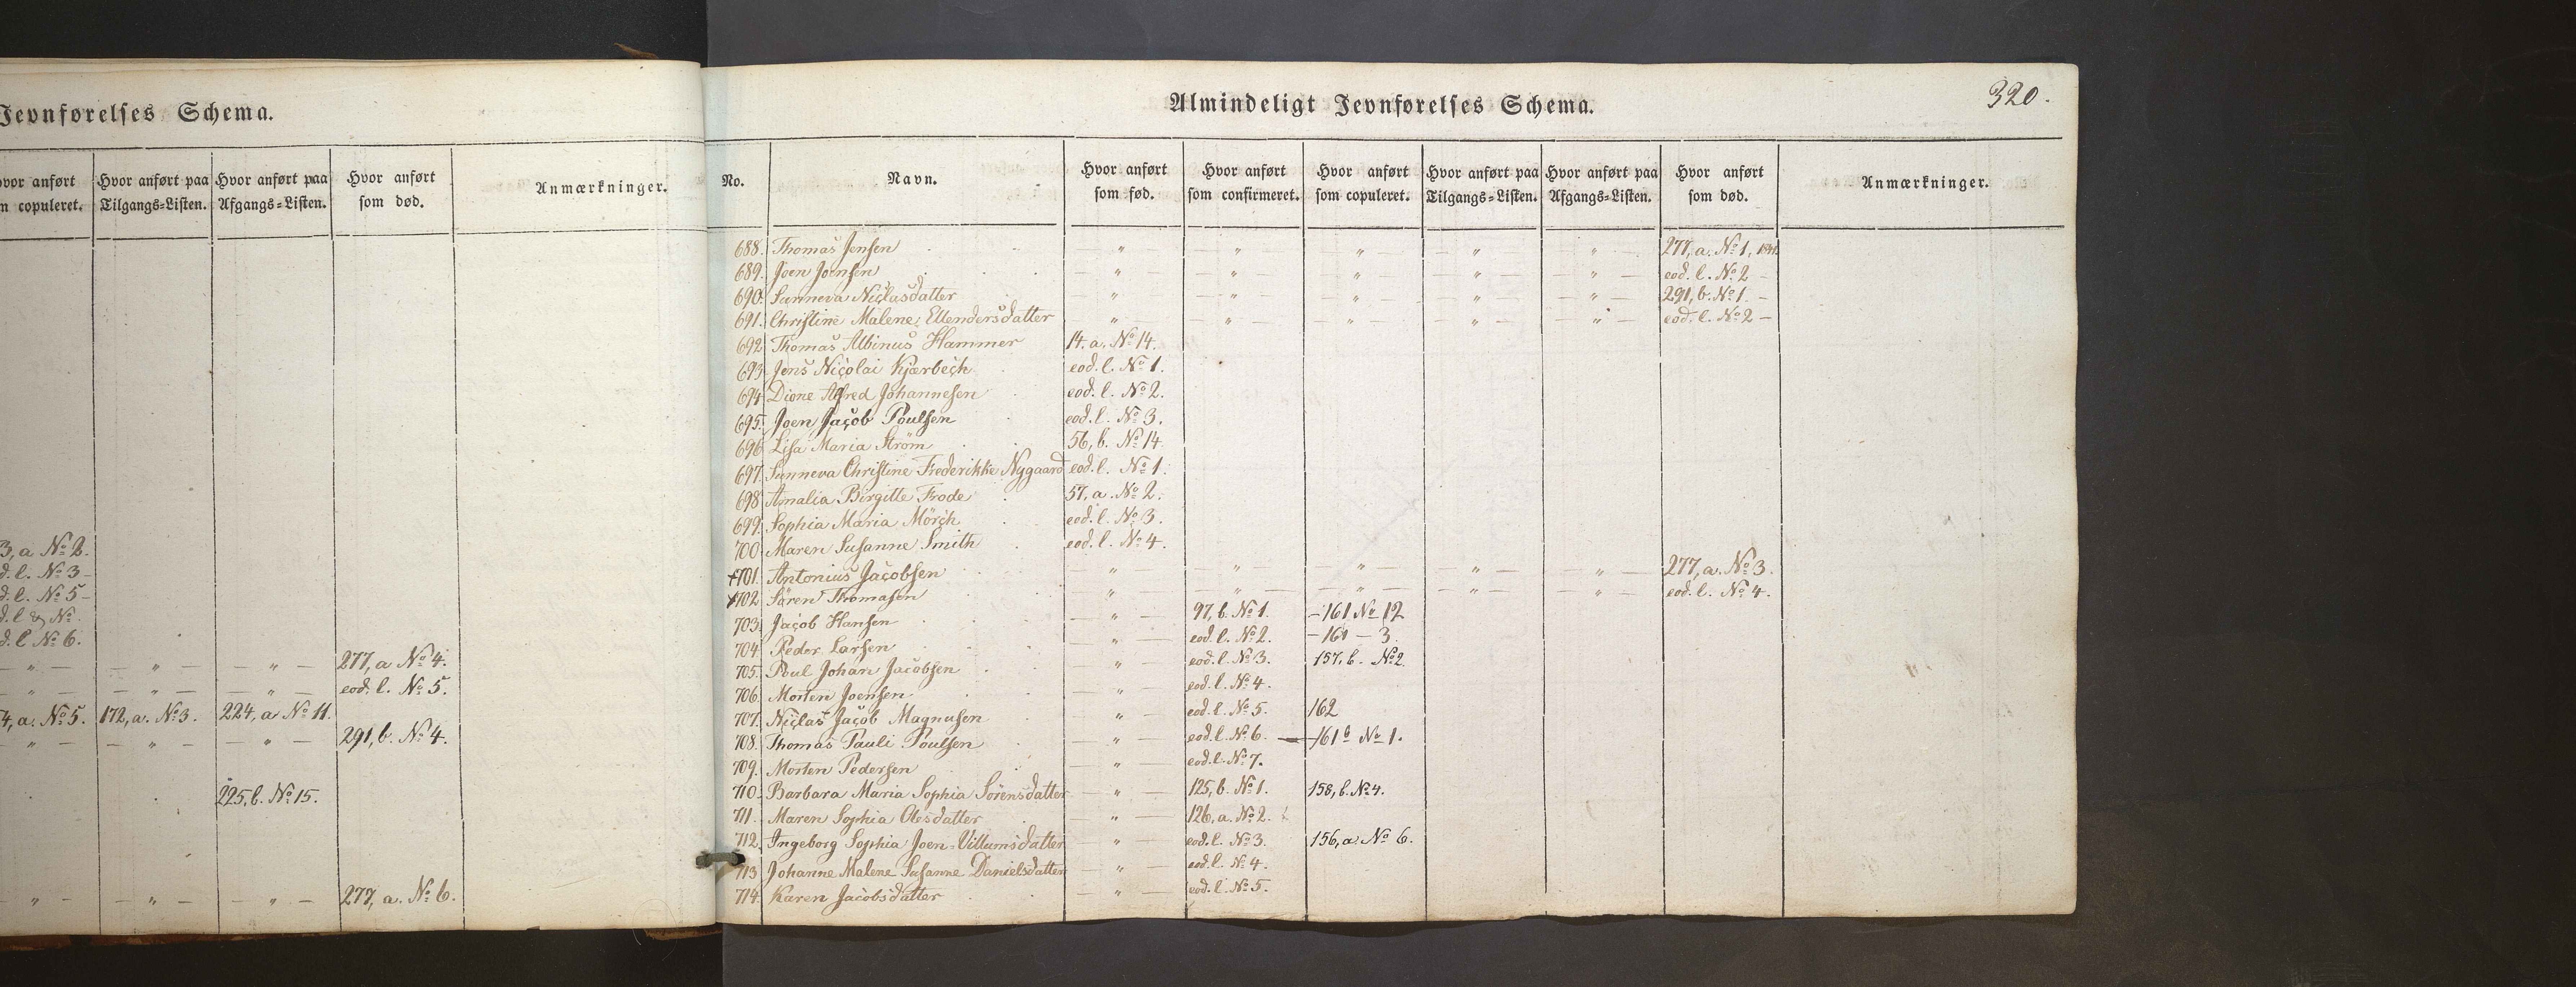 Jevnførelses Schema.
Hvor anført paa Tilgangs=Listen. Hvor anført paa Afgangs=Listen. Hvor anført som død. Anmærkninger.
3, a No 2.
d. l. No 3 -
d. l. No 5 -
d. l. No 6.
- " - - " - - " - 277, a No 4.
- " - - " - - " - eod. l. No 5.
4, a. No 5. 172, a. No 3. 224, a No 11.
- " - - " - - " - 291, b. No 4.
225, b. No 15.
- " - - " - - " - 277, a. No 6.
320.
Almindeligt Jevnførelses Schema.
No. Navn. Hvor anført som fød. Hvor anført som confirmeret. Hvor anført som copuleret. Hvor anført paa Tilgangs=Listen. Hvor anført paa Afgangs=Listen. Hvor anført som død. Anmærkninger.
688. Thomas Jensen " " " " " 277, a. No 1,
689. Joen Joensen " " " " " eod. l. No 2 -
690. Sunneva Niclasdatter " " " " " 291, b. No 1. -
691. Christine Malene Ellendersdatter " " " " " eod. l. No 2 -
692 Thomas Albinus Hammer 14. a. No 14.
693 Jens Nicolai Kjærbech eod. l. No 1.
694 Dione Alfred Johannesen eod. l. No 2.
695. Joen Jacob Poulsen eod. l. No 3.
696 Lisa Maria Strøm 56, b. No 14.
697. Sunneva Christine Frederikke Nygaard eod. l. No 1.
698 Amalia Birgitte Trode 57. a. No 2.
699. Sophia Maria Mörch eod. l. No 3.
700. Maren Susanne Smith eod. l. No 4.
+701. Antonius Jacobsen " " " " " 277, a. No 3.
+702 Sören Thomasen " " " " " eod. l. No 4.
703. Jacob Hansen " 97, b. No 1. - 161 No 12
704. Peder Larsen " eod. l. No 2. - 161 - 3.
705. Poul Johan Jacobsen " eod. l. No 3. 157, b. No 2
706. Morten Joensen " eod. l. No 4.
707. Niclas Jacob Magnusen " eod. l. No 5. 162
708. Thomas Pauli Poulsen " eod. l. No 6. - 161 b No 1.
709. Morten Pedersen " eod. l. No 7.
710. Barbara Maria Sophia Sörensdatter " 125, b. No 1. 158, b. No 4.
711. Maren Sophia Olesdatter " 126, a. No 2.
712. Ingeborg Sophia Joen=Villumsdatter " eod. l. No 3. 156, a. No 6.
713 Johanne Malene Susanne Danielsdatter " eod. l. No 4.
714. Karen Jacobsdatter " eod. l. No 5.